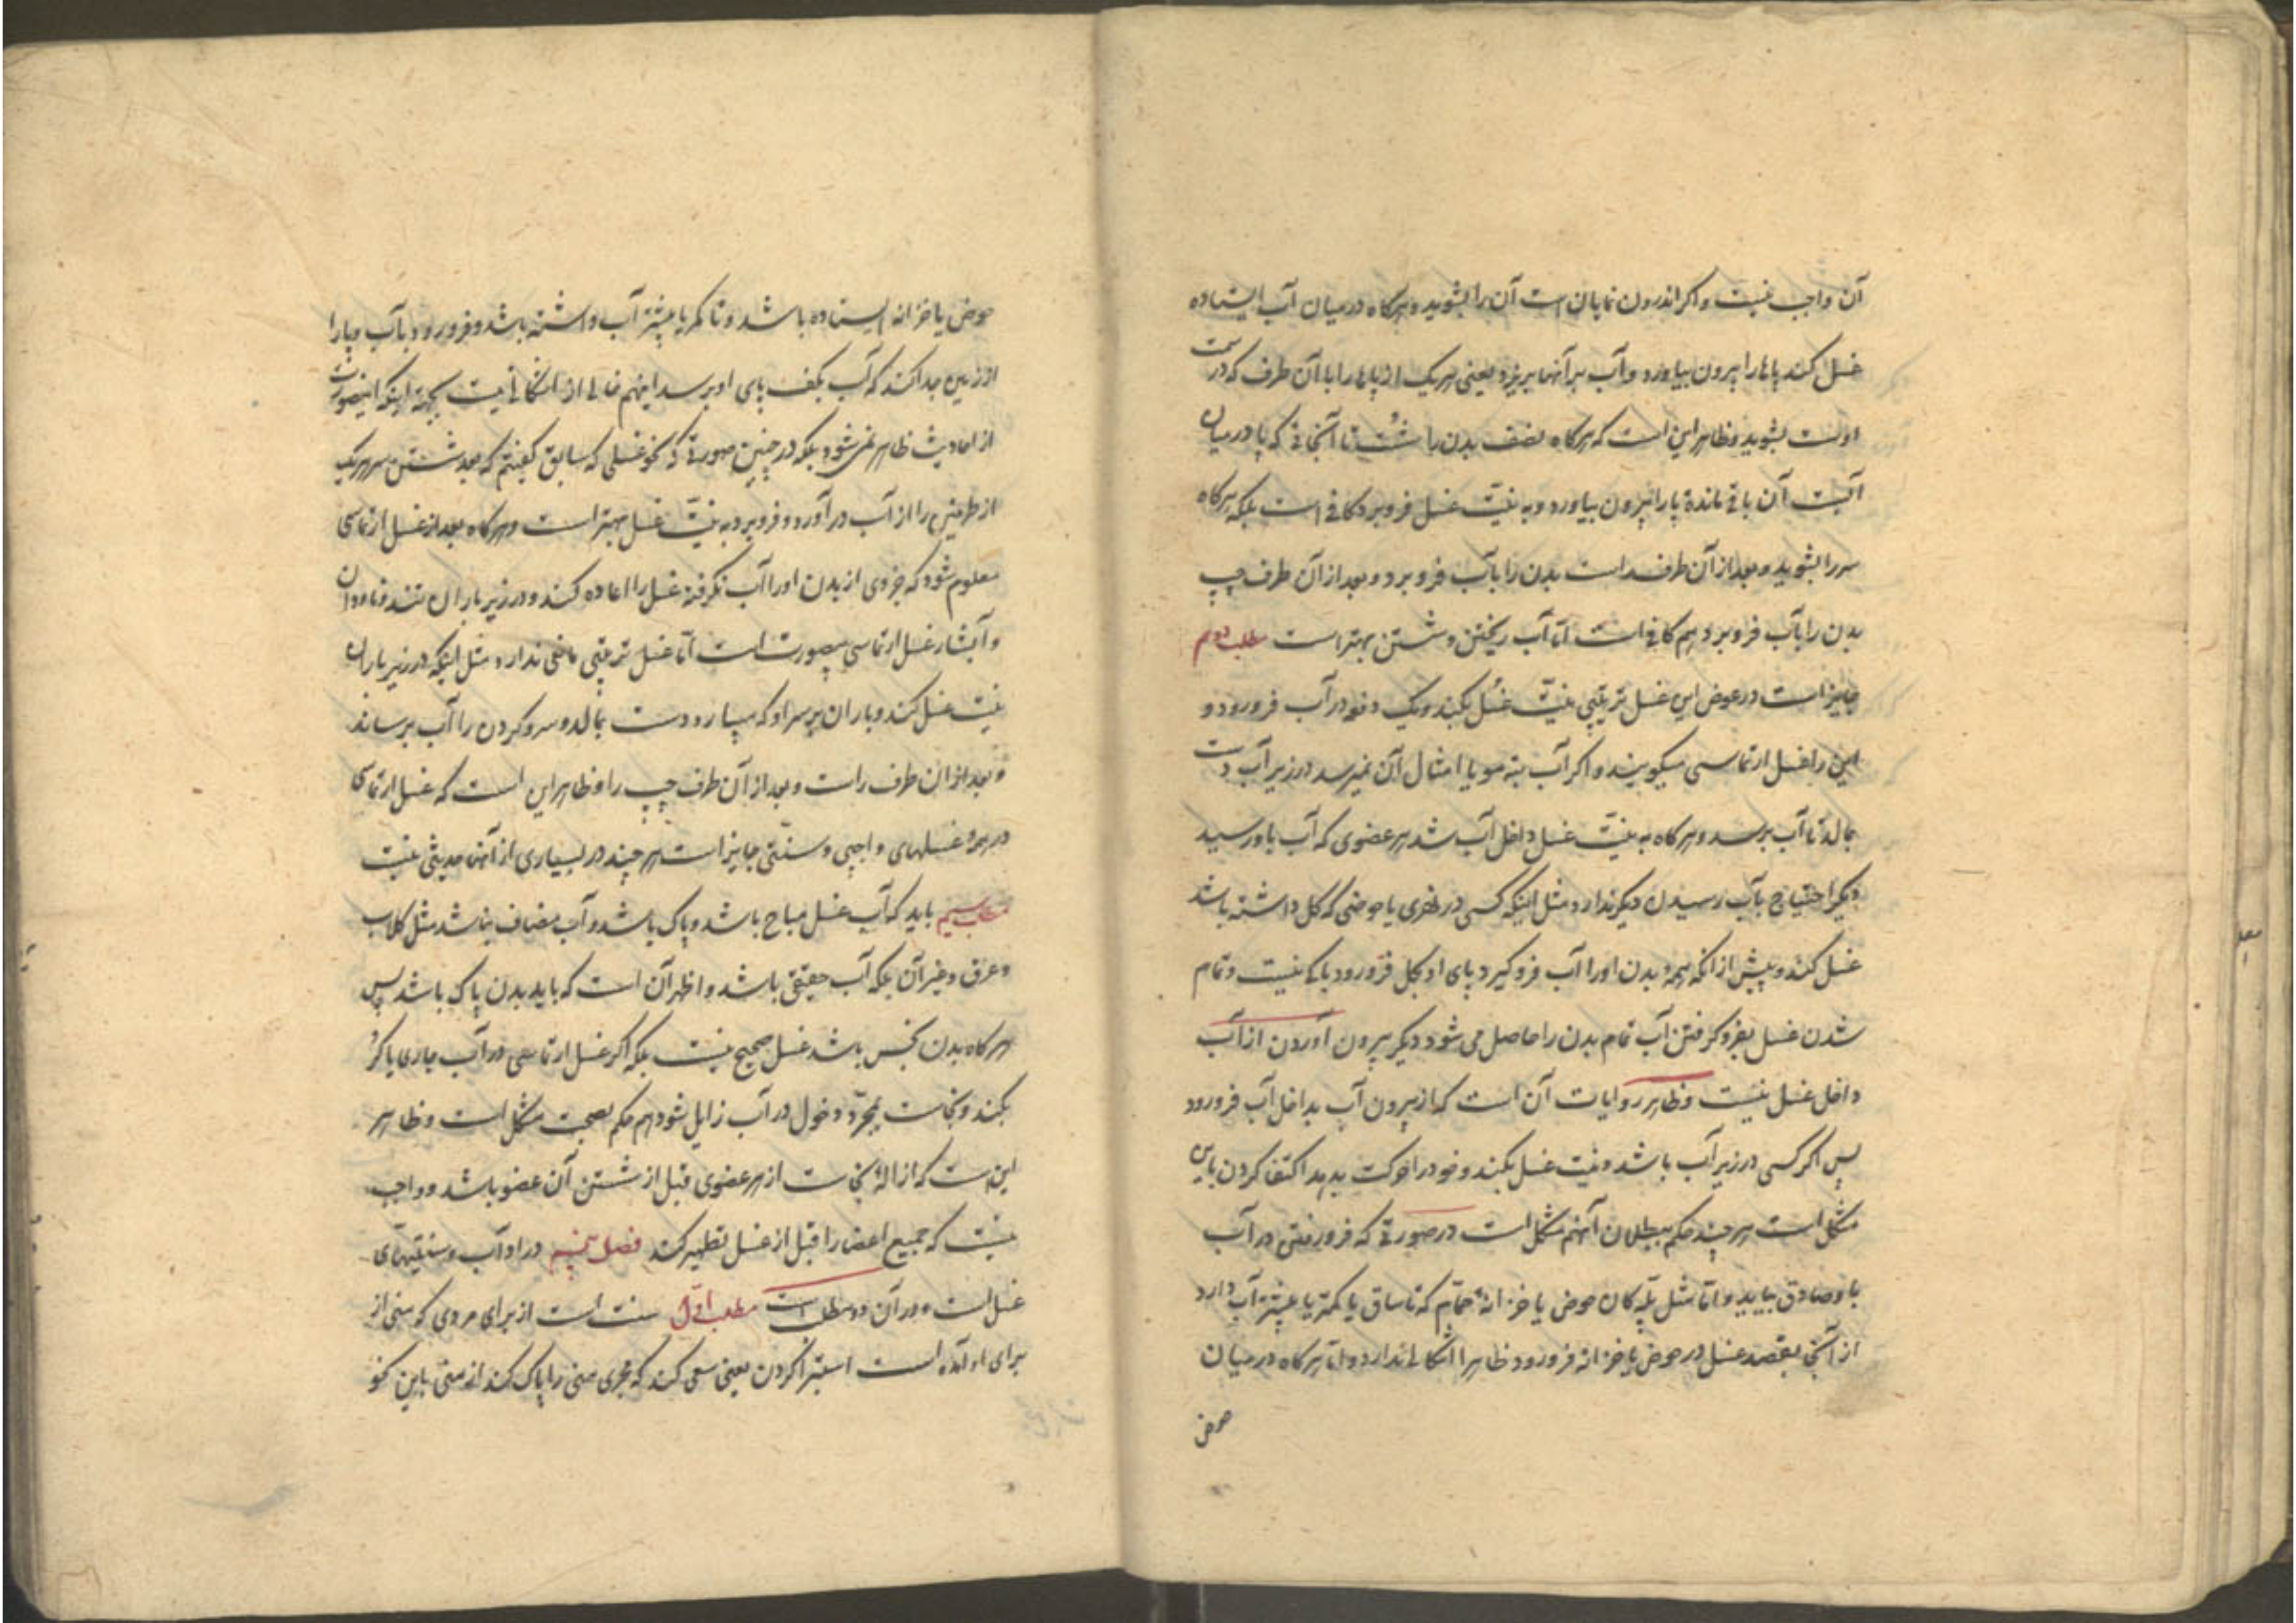 آن واجب نیست و اگر اندرون نمایان است آن را بشوید و هرگاه در میان آب ایستاده
غسل کند پاها را بیرون بیاورد و آب بر آنها بریزد یعنی هر یک از پاها را با آن طرف که در سمت
اوست بشوید و ظاهر این است که هرگاه نصف بدن را شُست تا آنجائی که پا در میان
آبست آن باقی مانده پا را بیرون بیاورد و به نیّت غسل فرو برد کافی است بلکه هرگاه
سر را بشوید و بعد از آن طرف راست بدن را بآب فرو برد و بعد از آن طرف چپ
بدن را بآب فرو برد هم کافی است امّا آب ریختن و شستن بهتر است مطلب دویم
جایز است در عوض این غسل ترتیبی نیّت غُسل بکند و یک دفعه در آب فرو رود و
این را غسل ارتماسی میگویند و اگر آب بته مو یا امثال آن نمیرسد در زیر آب دست
بمالد تا آب برسد و هرگاه به نیّت غسل داخل آب شد هر عضوی که آب باو رسید
دیگر احتیاج بآب رسیدن دیگر ندارد مثل اینکه کسی در نهری یا حوضی که گل داشته باشد
غسل کند و پیش از آنکه همهٔ بدن او را آب فرو گیرد پای او بگل فرو رود باکی نیست و تمام
شدن غسل بفرو گرفتن آب تمام بدن را حاصل می شود دیگر بیرون آوردن از آب
داخل غسل نیست و ظاهر روایات آن است که از بیرون آب بداخل آب فرو رود
پس اگر کسی در زیر آب باشد و نیت غسل بکند و خود را حرکت بدهد اکتفا کردن باین
مشکل است هر چند حکم ببطلان آنهم مشکل است در صورتی که فرو رفتن در آب
باو صادق بیاید و امّا مثل پلّه کان حوض یا خزانهٔ حمّام که تا ساق یا کمتر یا بیشتر آب دارد
از آنجا بقصد غسل در حوض یا خزانه فرو رود ظاهرا اشکالی ندارد و امّا هرگاه در میان
حوض
حوض یا خزانه ایستاده باشد و تا کمر یا بیشتر آب داشته باشد و فرو رود بآب و پا را
از زمین جدا کند که آب بکف پای او برسد اینهم خالی از اشکالی نیست بجهة اینکه اینصورت
از احادیث ظاهر نمی شود بلکه در چنین صورتی که نحو غسلی که سابق گفتیم که بعد شستن سر هر یک
از طرفین را از آب در آورد و فرو برد به نیّت غسل بهتر است و هرگاه بعد از غسل ارتماسی
معلوم شود که جزوی از بدن او را آب نگرفته غسل را اعاده کند و در زیر باران تند و ناودان
و آبشار غسل ارتماسی بیصورت است امّا غسل ترتیبی مانعی ندارد مثل اینکه در زیر باران
نیّت غسل کند و باران بر سر او که میبارد دست بمالد و سر و گردن را آب برساند
و بعد از آن طرف راست و بعد از آن طرف چپ را و ظاهر این است که غسل ارتماسی
در همهٔ غسلهای واجبی و سنّتی جایز است هر چند در بسیاری از آنها حدیثی نیست
مطلب سیم باید که آب غسل مباح باشد و پاک باشد و آب مضاف نباشد مثل گلاب
و عرق و غیر آن بلکه آب حقیقی باشد و اظهر آن است که باید بدن پاک باشد پس
هرگاه بدن نجس باشد غسل صحیح نیست بلکه اگر غسل ارتماسی در آب جاری یا کُر
بکند و نجاست بمجرّد دخول در آب زایل شود هم حکم بصحت مشکل است و ظاهر
این است که ازالهٔ نجاست از هر عضوی قبل از شستن آن عضو باشد و واجب
نیست که جمیع اعضا را قبل از غسل تطهیر کند فصل پنجم در آداب و سنّتیهای
غسل است و در آن دو مطلب است مطلب اوّل سنت است از برای مردی که منی از
برای او آمده است استبرا کردن یعنی سعی کند که مجری منی را پاک کند از منی باین نحو